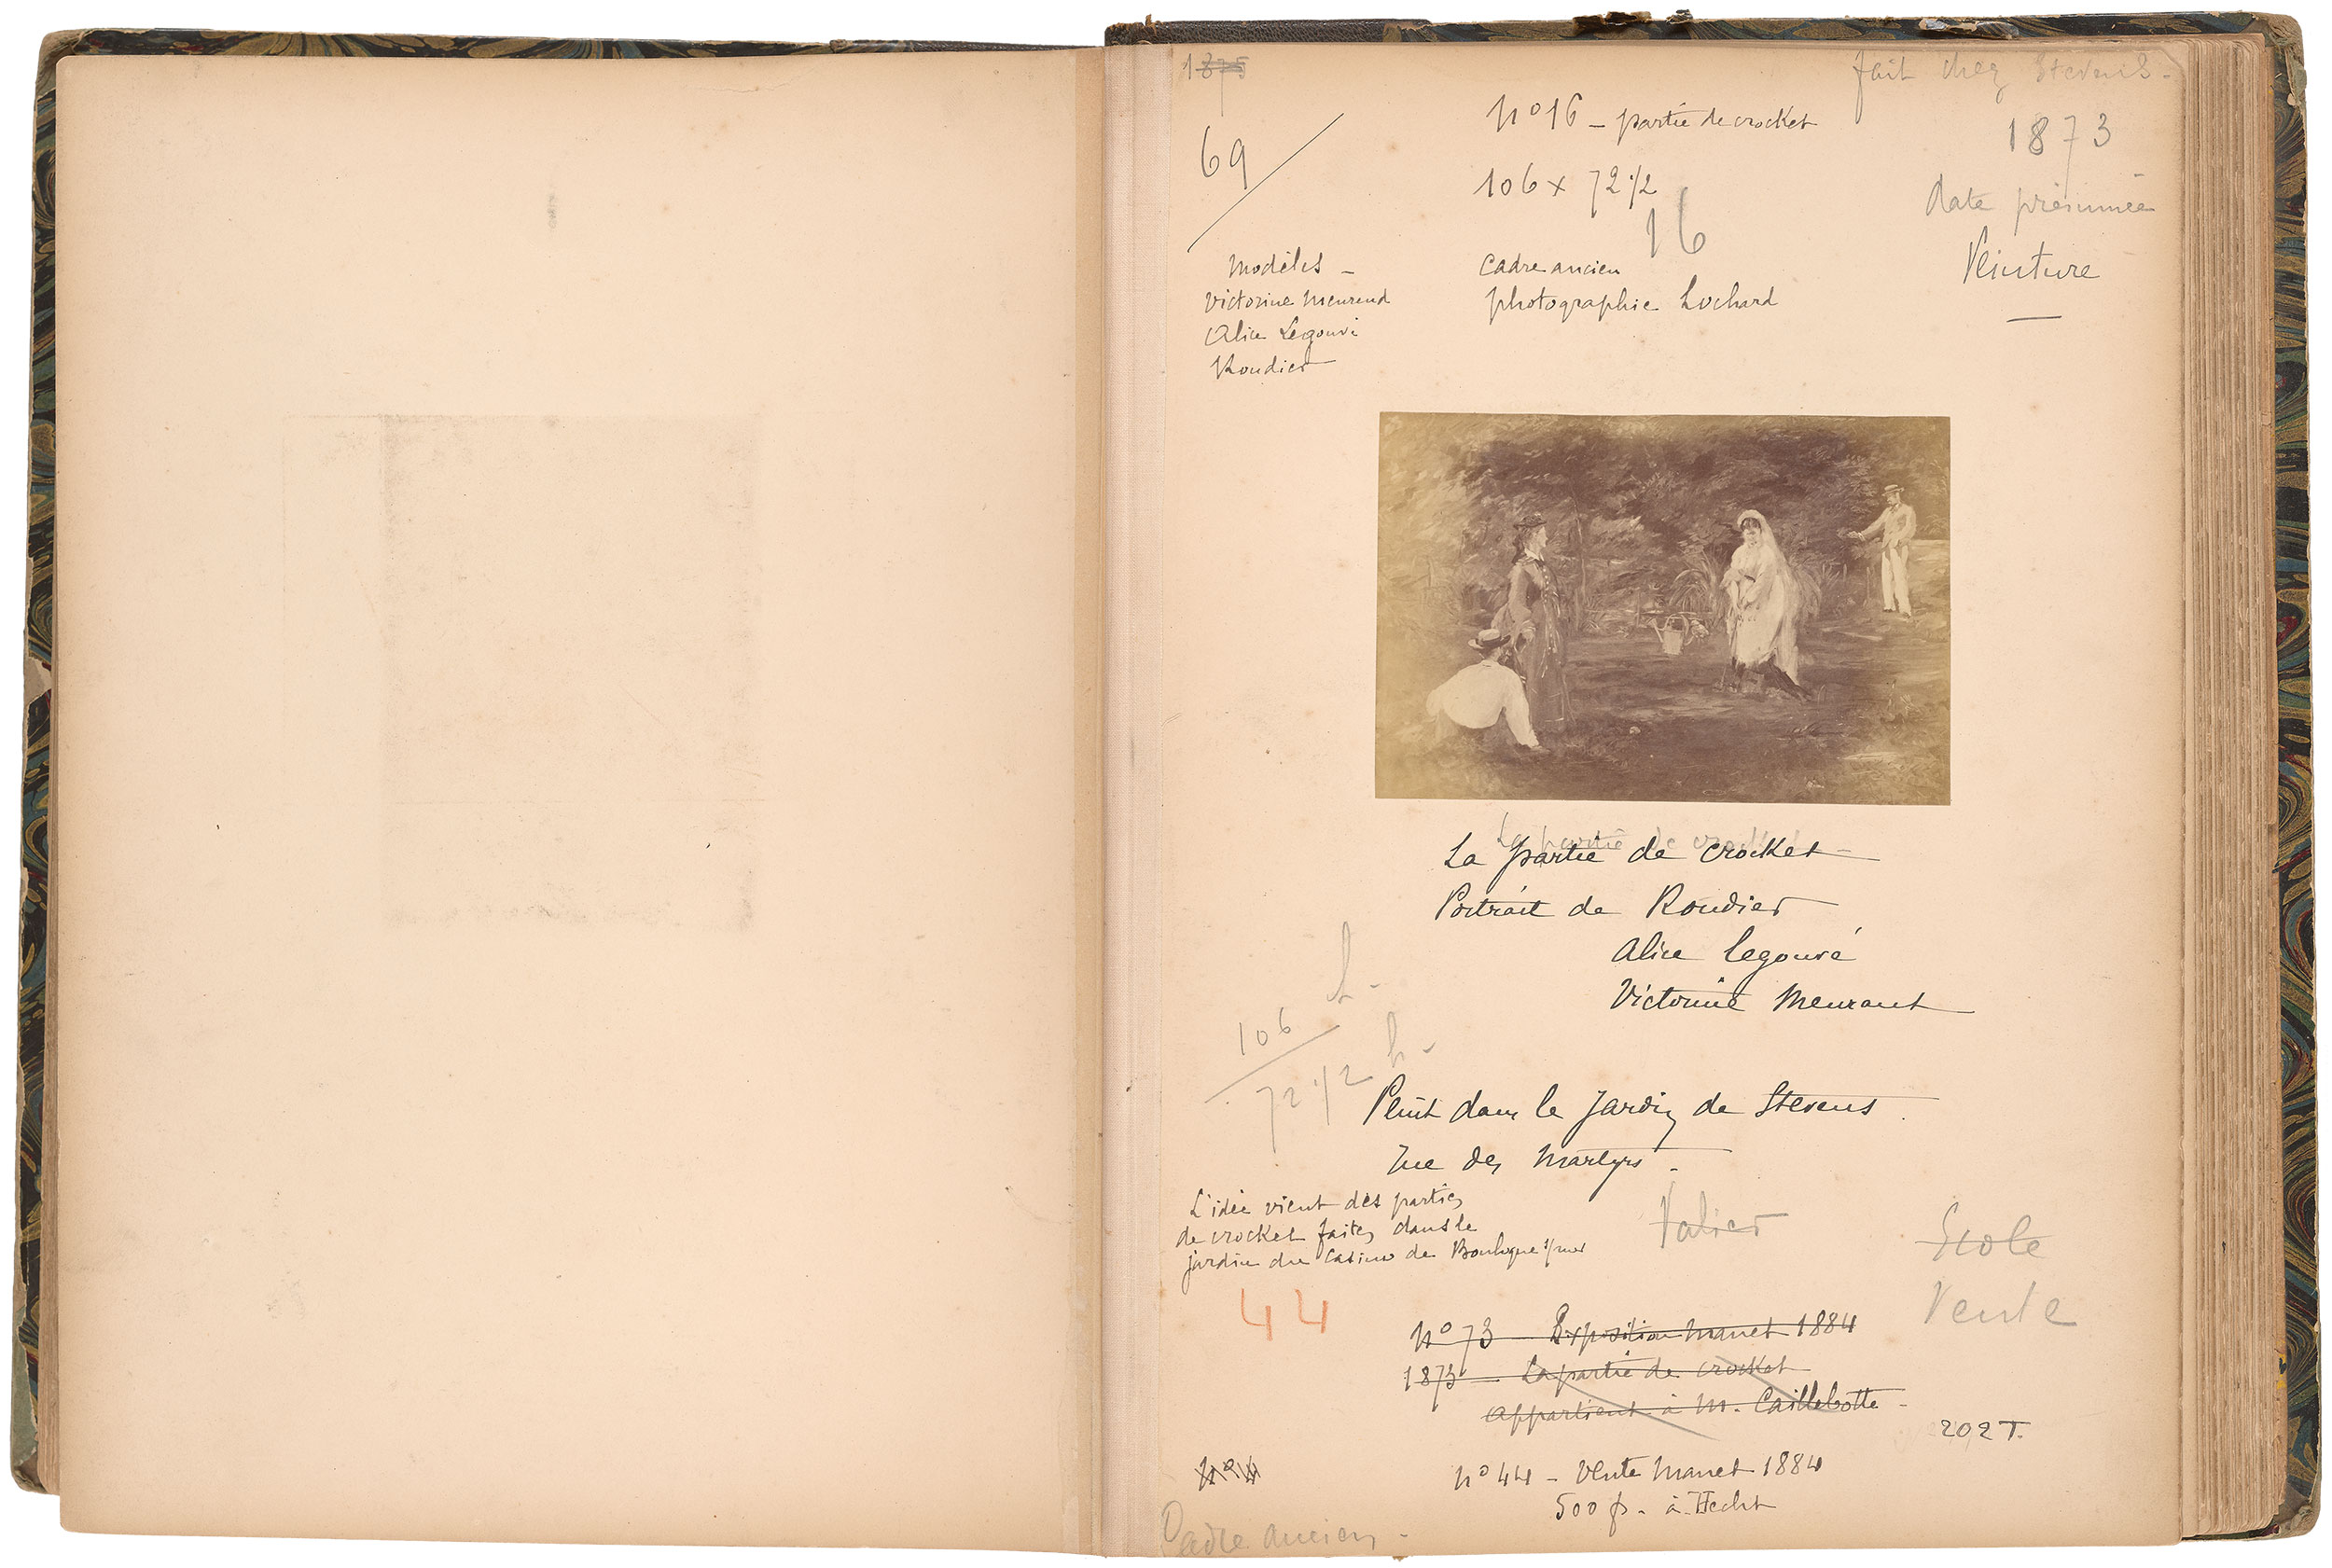 1875
fait chez Stevens -
nº 16 - partie de crocket
1873
69
106 x 72 1/2
date présumée
16
Peinture
Modèles -
Victorine Meurend
Alice Legouvé
Roudier
Cadre ancien
photographie Lochard
La partie de crocket
La partie de crocket
Portrait de Roudier
Alice Legouvé
Victorine Meurant
106 l -
72 1/2 h -
Peint dans le jardin de Stevens
rue des Martyrs -
L'idée vient des parties
de crocket faites dans le
jardin du Casino de Boulogne s/mer
Ecole
Vente
44
nº 73 Exposition Manet 1884
1873 - La partie de crocket
appartient à M. Caillebotte -
202 T.
nº 4
nº 44 - Vente Manet 1884
500 f. à Hecht
Cadre ancien -